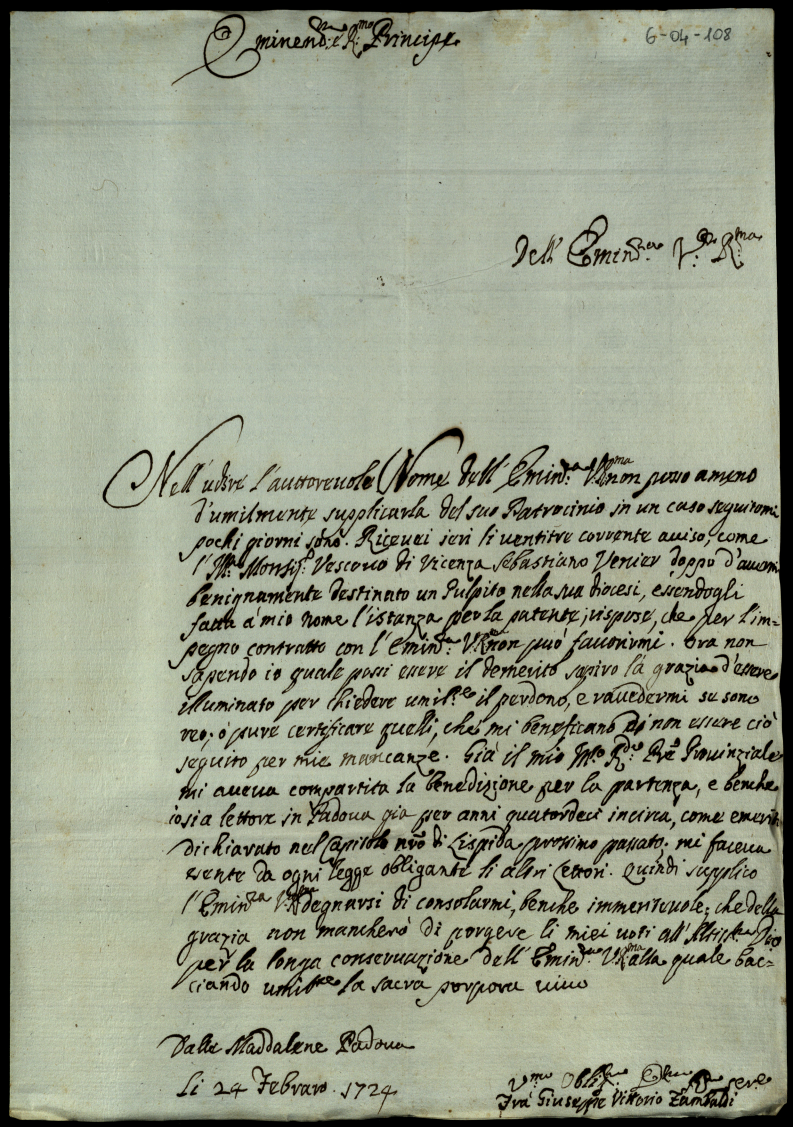 Eminend.mo e R.mo Principe
6-04-108
Dell' Emind.za V.ra R.ma
Nell' udire l'auttorevole Nome dell' Emin.za V.R.ma non posso ameno
d'umilmente supplicarla del suo Patrocinio in un caso seguitomi
pochi giorni sono. Ricevei jeri li ventitre corrente aviso, come
l' Ill. Monsig.r Vescovo di Vicenza Sebastiano Venier doppo d'avermi
benignamente destinato un Pulpito nella sua diocesi, essendogli
fatta à mio nome l'istanza per la patente, rispose, che per l'im=
pegno contratto con l' Emin.za V.R.ma non può favorirmi. Ora non
sapendo io quale possi essere il demerito sospiro la grazia d'essere
illuminato per chiedere umil.te il perdono, e ravedermi se sono
reo, ò pure certificare quelli, che mi beneficano di non essere ciò
seguito per mie mancanze. Già il mio M.o R.do Pre Provinziale
mi aveva compartita la benedizione per la partenza, e benche
io sia lettore in Padova già per anni quatordeci incirca, come emerito
dichiarato nel Capitolo nro di Lispida prossimo passato; mi faceva
esente da ogni legge obligante li altri Lettori. Quindi supplico
l'Emin.za V.R.ma degnarsi di consolarmi, benche immeritevole; che della
grazia non mancherò di porgere li miei voti all' Altiss.mo Dio
per la longa conservazione dell' Emin.za V.R.ma alla quale bac=
ciando umil.te la sacra porpora vivo
Dalle Maddalene Padova
Li 24 Febraro. 1724
V.mo Oblig.mo Ser.e
Frà Giuseppe Vittorio Zambaldi